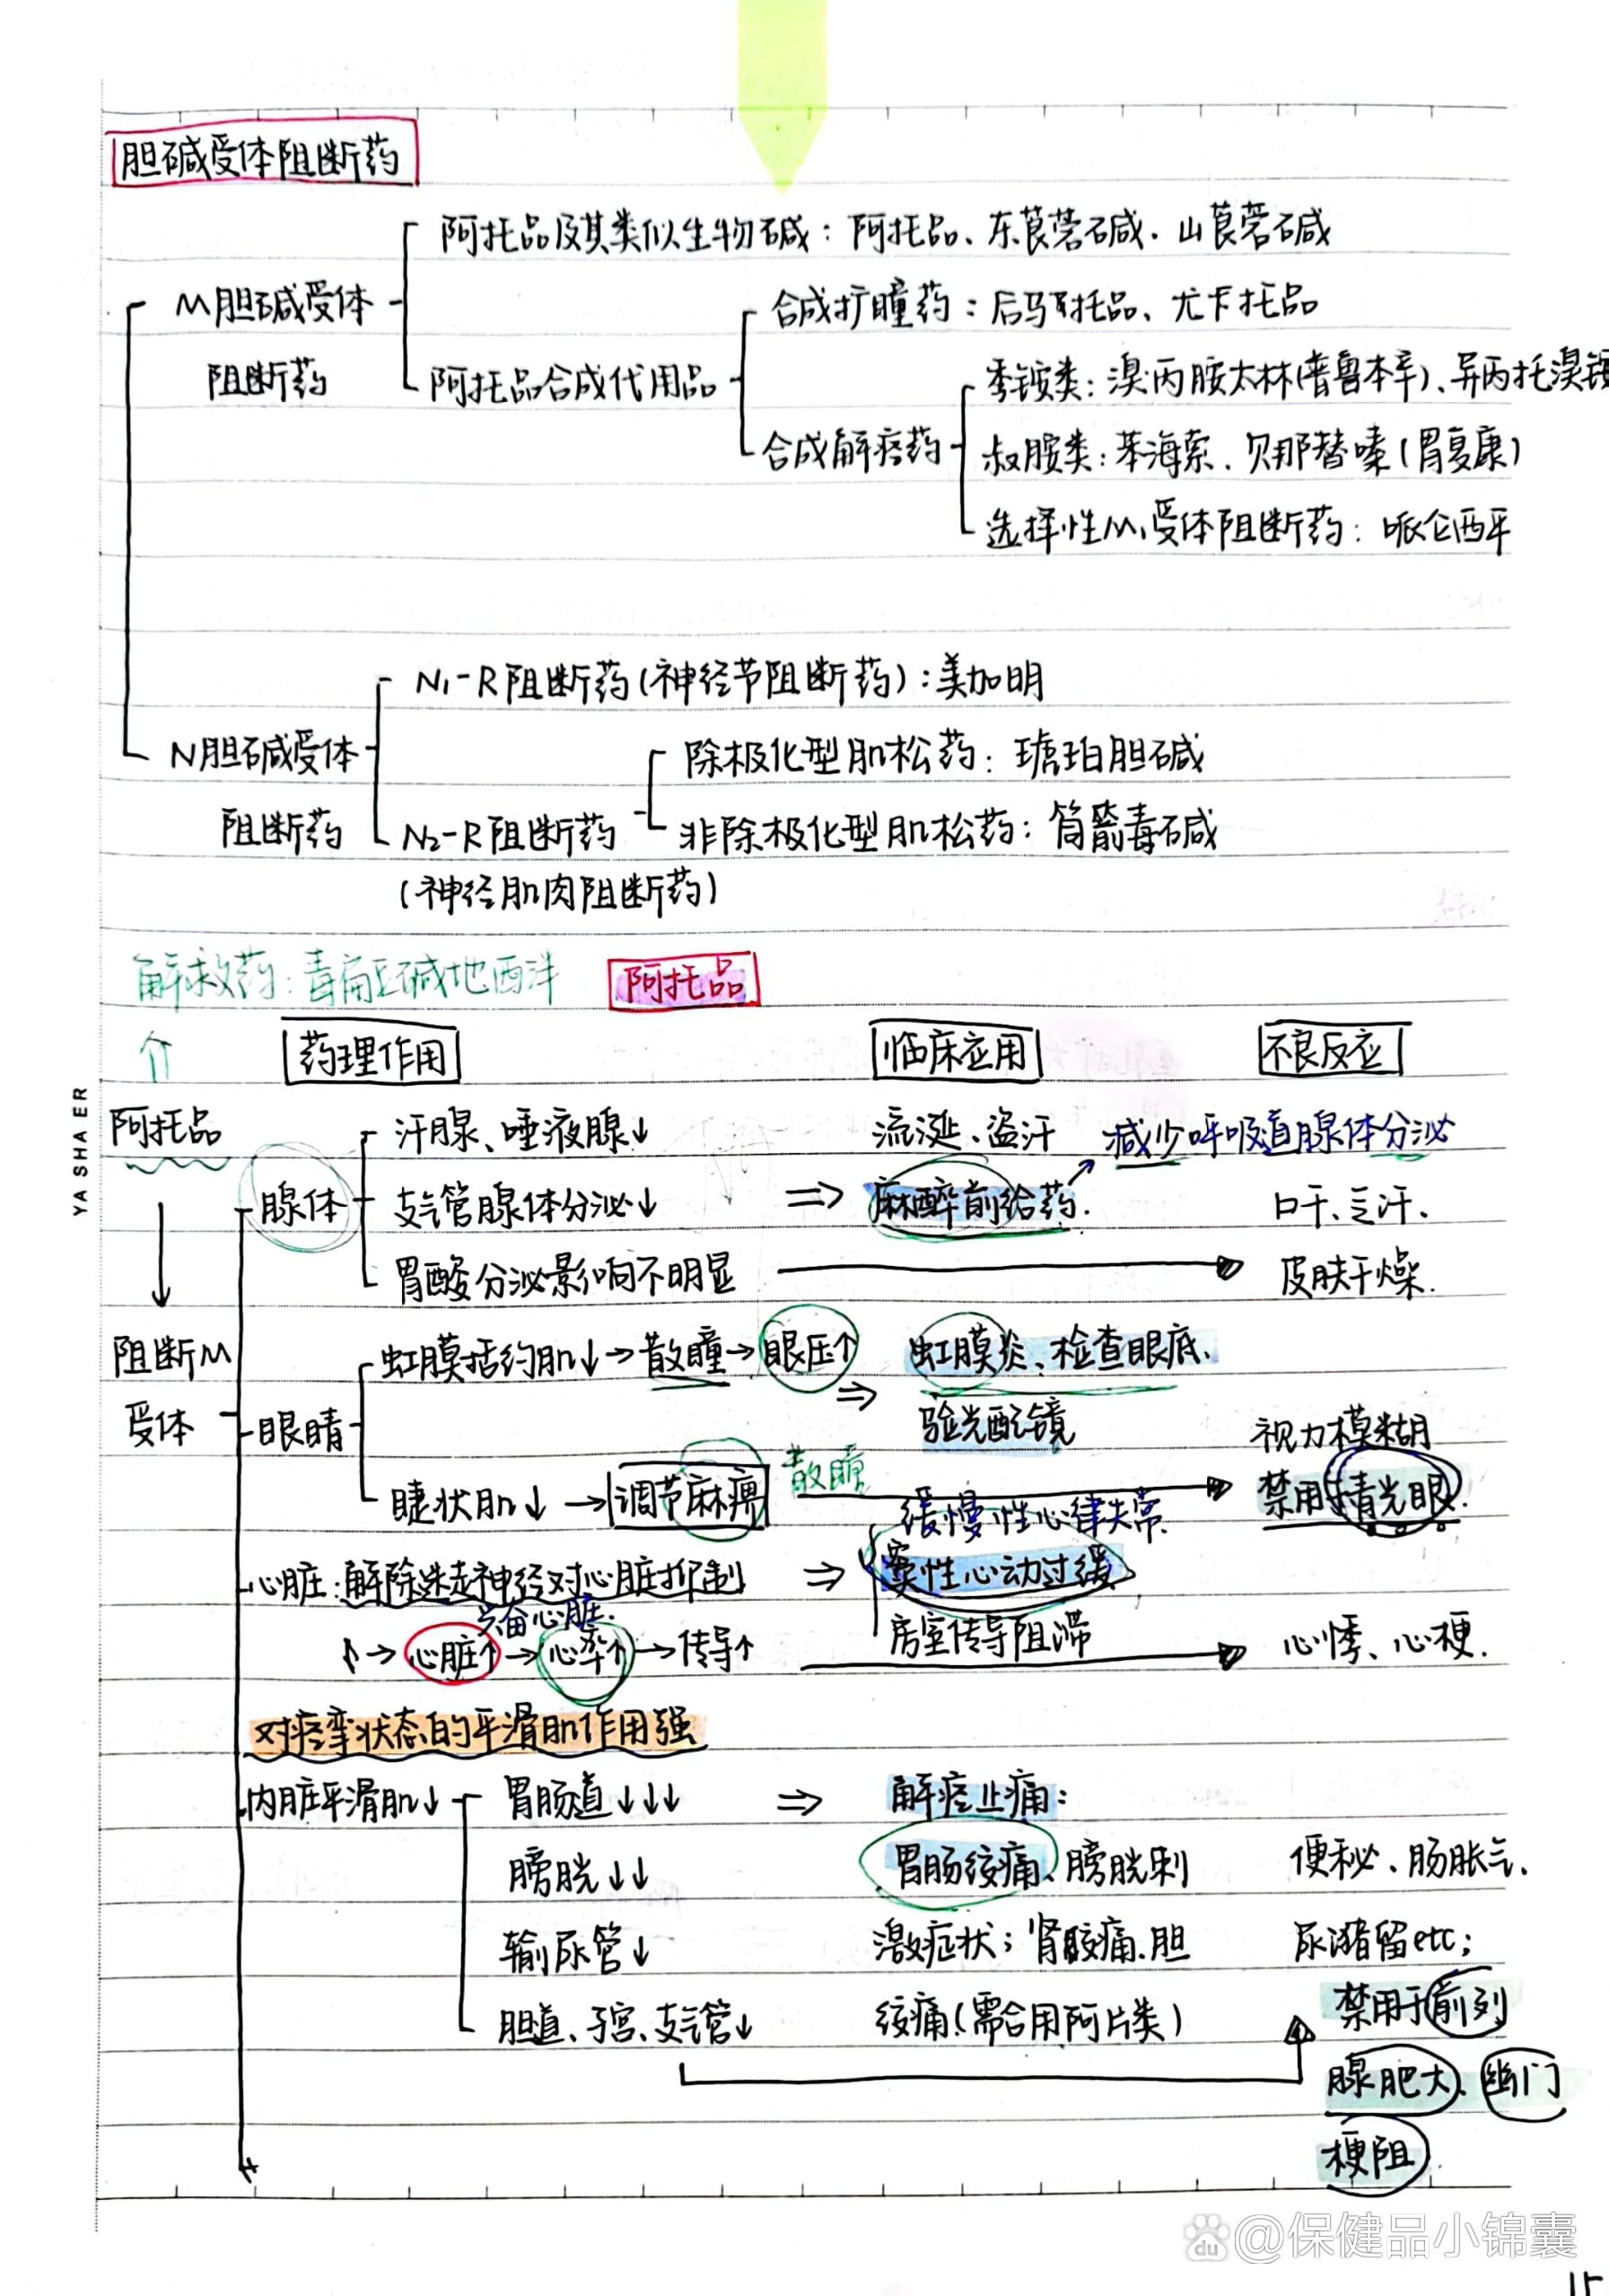 胆碱受体阻断药
阿托品及其类似生物碱：阿托品、东莨菪碱、山莨菪碱
M胆碱受体
阻断药
合成扩瞳药：后马托品、尤卡托品
阿托品合成代用品
季铵类：溴丙胺太林(普鲁本辛)、异丙托溴铵
合成解痉药
叔胺类：苯海索、贝那替嗪(胃复康)
选择性M₁受体阻断药：哌仑西平
N₁-R阻断药(神经节阻断药)：美加明
N胆碱受体
阻断药
除极化型肌松药：琥珀胆碱
N₂-R阻断药
非除极化型肌松药：筒箭毒碱
(神经肌肉阻断药)
解救药：毒扁豆碱地西泮
阿托品
药理作用 临床应用 不良反应
阿托品
汗腺、唾液腺↓ 流涎、盗汗 减少呼吸道腺体分泌
腺体 支气管腺体分泌↓ ⇒ 麻醉前给药. 口干、乏汗、
胃酸分泌影响不明显 → 皮肤干燥.
阻断M
受体
虹膜括约肌↓→散瞳→眼压↑ ⇒ 虹膜炎、检查眼底、
眼睛 验光配镜 视力模糊
睫状肌↓→调节麻痹 散瞳 → 禁用于青光眼.
缓慢性心律失常
心脏：解除迷走神经对心脏抑制 ⇒ 窦性心动过缓
兴奋心脏.
→心脏↑→心率↑→传导↑ 房室传导阻滞 → 心悸、心梗.
对痉挛状态的平滑肌作用强
内脏平滑肌↓ 胃肠道↓↓↓ ⇒ 解痉止痛：
膀胱↓↓ 胃肠绞痛、膀胱刺 便秘、肠胀气、
输尿管↓ 激症状；肾绞痛、胆 尿潴留etc；
胆道、子宫、支气管↓ 绞痛(需合用阿片类) 禁用于前列
腺肥大、幽门
梗阻
YASHAER
du @保健品小锦囊